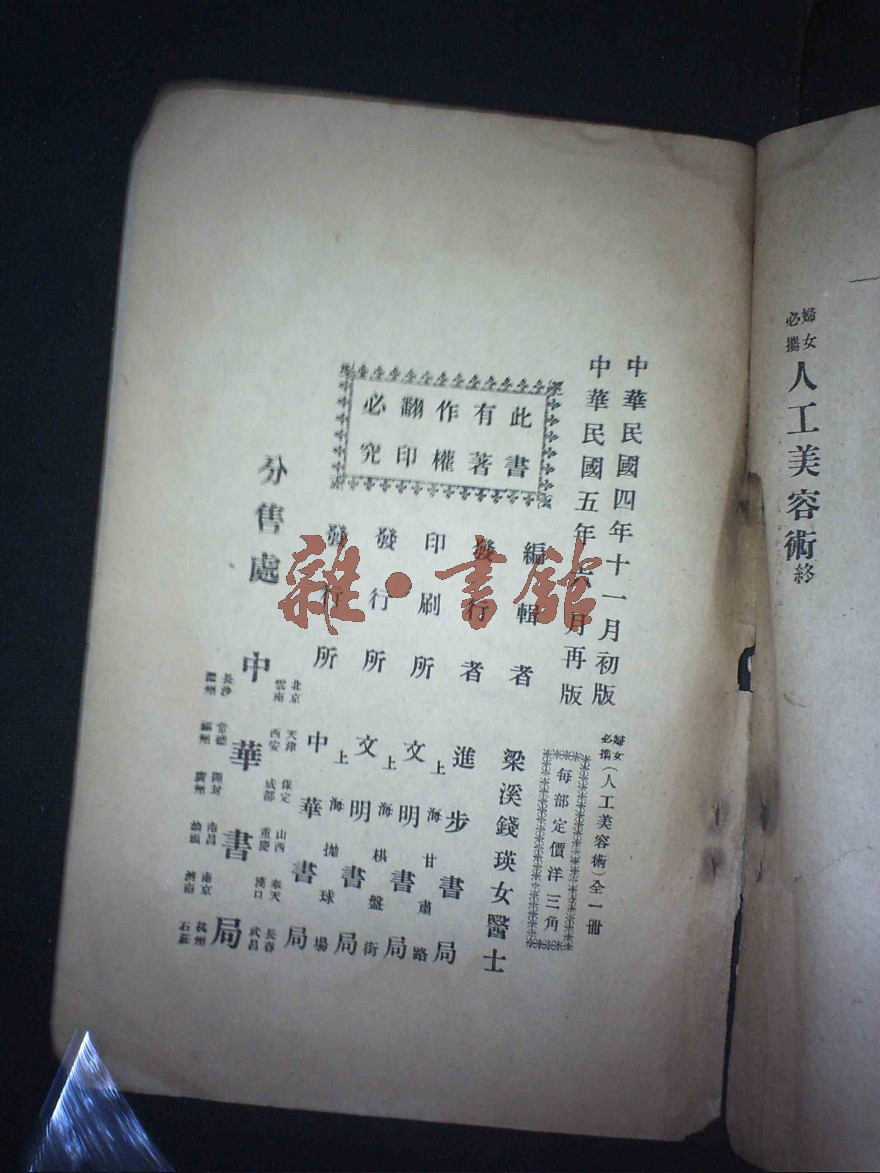 婦女
必攜
人工美容術終
中華民國四年十一月初版
中華民國五年六月再版
婦女
必攜
(人工美容術)全一冊
每部定價洋三角
此書
有著
作權
翻印
必究
編輯者 梁溪錢瑛女醫士
發行者 進步書局
上海甘肅路
印刷所 文明書局
上海棋盤街
發行所 文明書局
上海拋球場
發行所 中華書局
分售處 中華書局
北京 天津 保定 山西 奉天 長春
雲南 西安 成都 重慶 漢口 武昌
長沙 常德 開封 南昌 南京 杭州
溫州 福州 廣州 汕頭 濟南 石莊
雜·書館